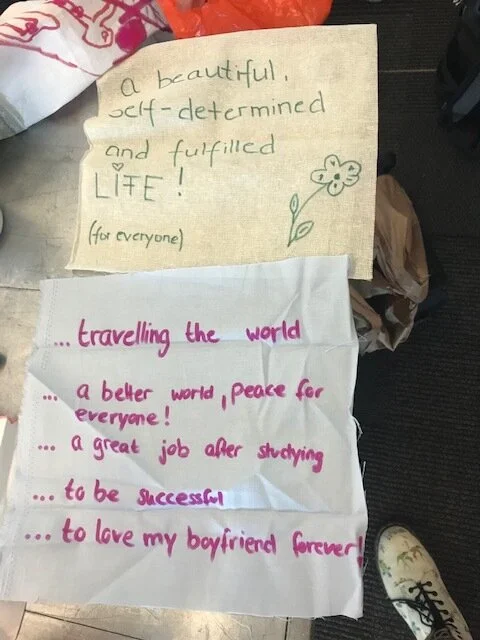 a beautiful,
self-determined
and fulfilled
LIFE!
(for everyone)
... travelling the world
... a better world, peace for
everyone!
... a great job after studying
... to be successful
... to love my boyfriend forever!